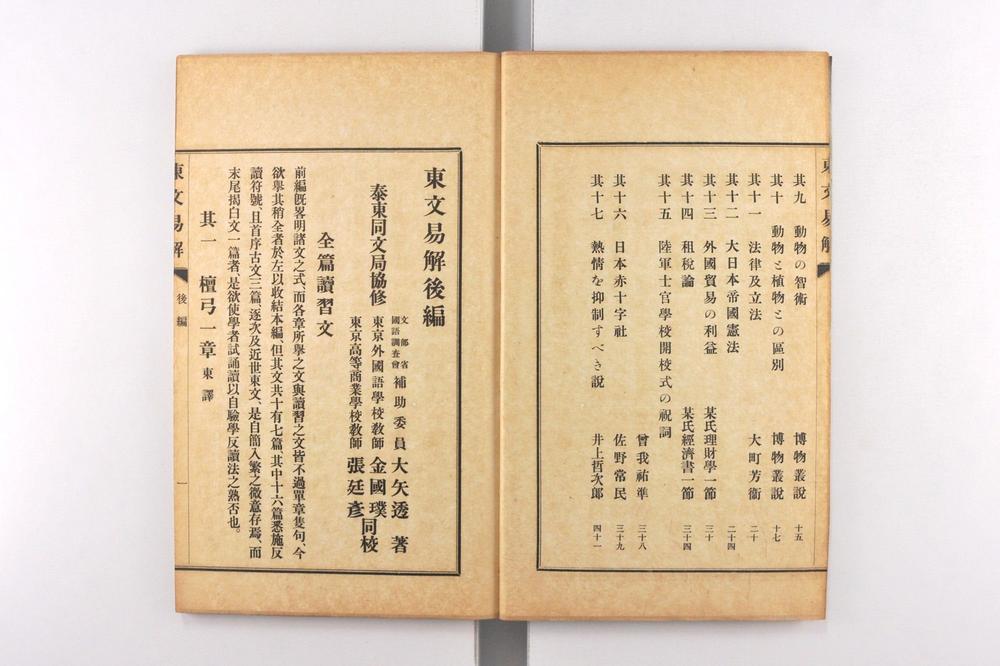 東文易解
其九 動物の智術 博物叢說 十五
其十 動物と植物との區別 博物叢說 十七
其十一 法律及立法 大町芳衞 二十
其十二 大日本帝國憲法 二十四
其十三 外國貿易の利益 某氏理財學一節 三十
其十四 租稅論 某氏經濟書一節 三十四
其十五 陸軍士官學校開校式の祝詞 曾我祐準 三十八
其十六 日本赤十字社 佐野常民 三十九
其十七 熱情を抑制すべき說 井上哲次郎 四十一
東文易解後編
泰東同文局協修
文部省國語調查會補助委員 大矢透 著
東京外國語學校敎師 金國璞
東京高等商業學校敎師 張廷彥
同校
全篇讀習文
前編既畧明諸文之式、而各章所擧之文與讀習之文皆不過單章隻句、今
欲擧其稍全者於左以收結本編、但其文共十有七篇、其中十六篇悉施反
讀符號、且首序古文三篇、逐次及近世東文、是自簡入繁之微意存焉、而
末尾揭白文一篇者、是欲使學者試誦讀以自驗學反讀法之熟否也。
其一 檀弓一章 東譯
東文易解
後編
一